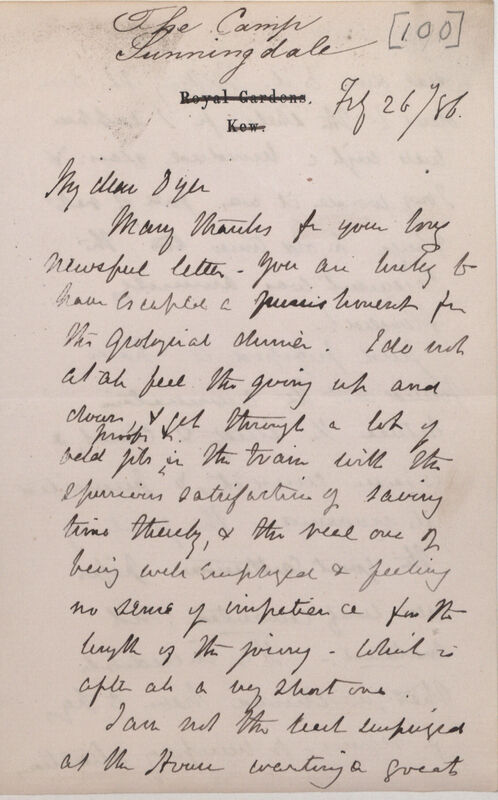 The Camp
Sunningdale
[100]
Royal Gardens,
Kew.
Feby 26/86.
My dear Dyer
Many thanks for your long
newsful letter - You are lucky to
have escaped a punishment for
the geological dinner. I do not
at all feel the going up and
down, & get through a lot of
proofs &
odd jobs in the train with the
spurious satisfaction of saving
time thereby, & the real one of
being well employed & feeling
no sense of impatience for the
length of the journey - which is
after all a very short one.
I am not the least surprised
at the House wanting a great